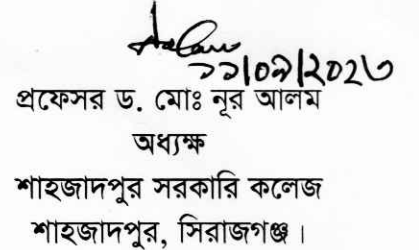 ১১/০৯/২০২৩
প্রফেসর ড. মোঃ নূর আলম
অধ্যক্ষ
শাহজাদপুর সরকারি কলেজ
শাহজাদপুর, সিরাজগঞ্জ।